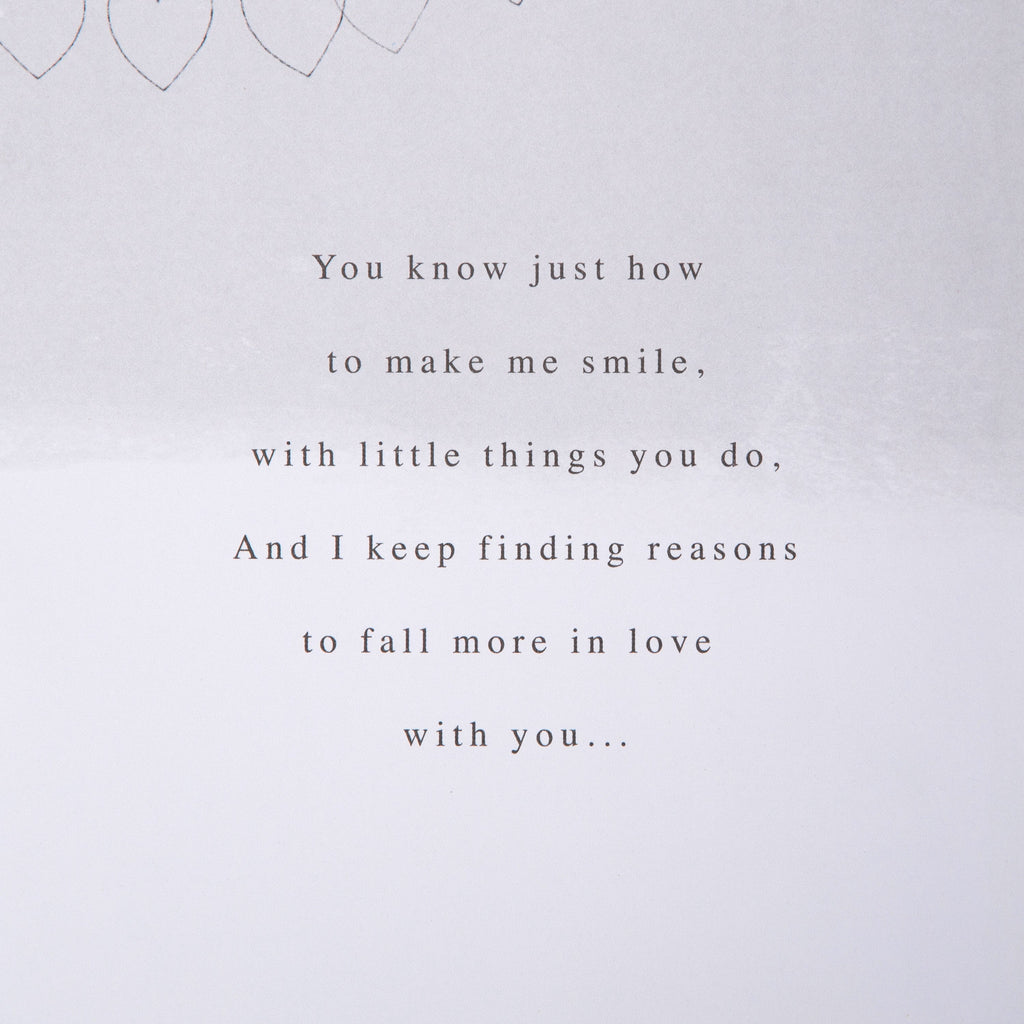 You know just how
to make me smile,
with little things you do,
And I keep finding reasons
to fall more in love
with you...